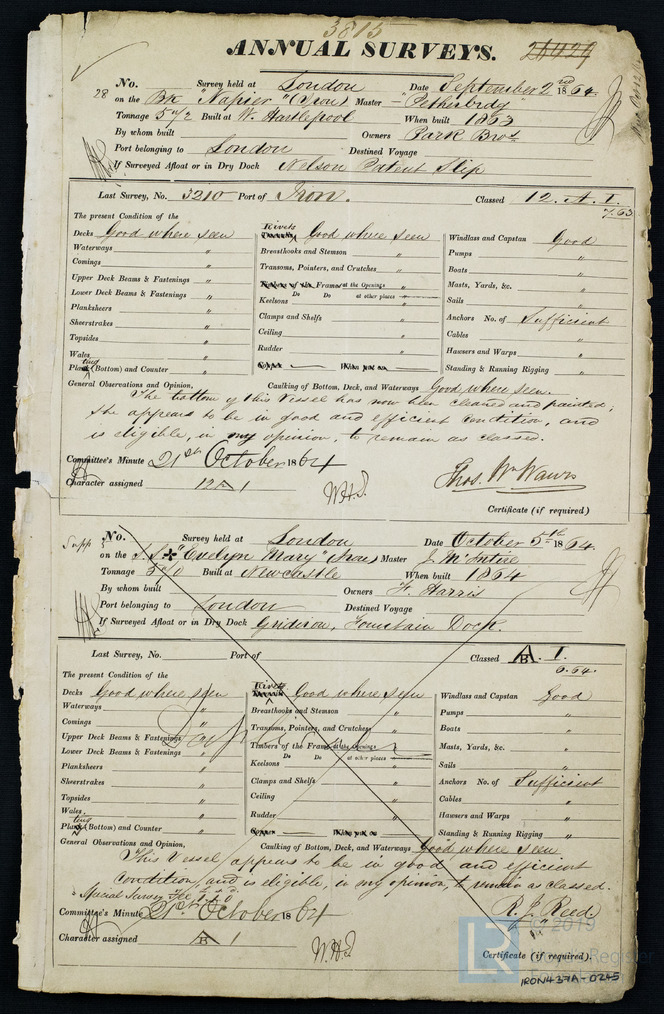 3815
ANNUAL SURVEYS. 26429
28 No. Survey held at London Date September 2nd 1864
on the Bk "Napier" (Iron) Master "Petherbrdy"
Tonnage 572 Built at W. Hartlepool When built 1863
By whom built Owners Park Bros.
Port belonging to London Destined Voyage
If Surveyed Afloat or in Dry Dock Nelson Patent Slip
Last Survey, No. 3210 Port of Iron. Classed 12. A. 1.
7.63
The present Condition of the
Decks Good where seen Rivets Good where seen Windlass and Capstan Good
Waterways " Breasthooks and Stemson " Pumps "
Comings " Transoms, Pointers, and Crutches " Boats "
Upper Deck Beams & Fastenings " Timbers of the Frame at the Openings " Masts, Yards, &c. "
Lower Deck Beams & Fastenings " Do Do at other places Sails "
Planksheers " Keelsons " Anchors No. of Sufficient
Sheerstrakes " Clamps and Shelfs " Cables "
Topsides " Ceiling " Hawsers and Warps "
Wales " Rudder " Standing & Running Rigging "
Plating (Bottom) and Counter "
General Observations and Opinion, Caulking of Bottom, Deck, and Waterways Good where seen.
The bottom of this Vessel has now been cleaned and painted;
She appears to be in good and efficient condition, and
is eligible, in my opinion, to remain as classed.
Committee's Minute 21st October 1864
Character assigned 12 A 1 W.H.S. Thos. Wm Wawn
Certificate (if required)
Supp No. Survey held at London Date October 5th 1864.
on the S.S. "Evelyn Mary" (Iron) Master J. McIntire
Tonnage Built at Newcastle When built 1864
By whom built Owners F. Harris
Port belonging to London Destined Voyage
If Surveyed Afloat or in Dry Dock Gridiron, Fountain Dock.
Last Survey, No. Port of Classed A B. 1.
6.64.
The present Condition of the
Decks Good where seen Rivets Good where seen Windlass and Capstan Good
Waterways " Breasthooks and Stemson " Pumps "
Comings " Transoms, Pointers, and Crutches " Boats "
Upper Deck Beams & Fastenings " Timbers of the Frame at the Openings " Masts, Yards, &c. "
Lower Deck Beams & Fastenings " Do Do at other places Sails "
Planksheers " Keelsons " Anchors No. of Sufficient
Sheerstrakes " Clamps and Shelfs " Cables "
Topsides " Ceiling " Hawsers and Warps "
Wales " Rudder " Standing & Running Rigging "
Plating (Bottom) and Counter "
General Observations and Opinion, Caulking of Bottom, Deck, and Waterways Good where seen
This Vessel appears to be in good and efficient
Condition, and is eligible, in my opinion, to remain as classed.
Special Survey Fee
R. J. Reed.
Committee's Minute 21st October 1864
Character assigned A B 1 W.H.S.
Certificate (if required).
© 2019
LR
Lloyd's Register
IRON437A-0245